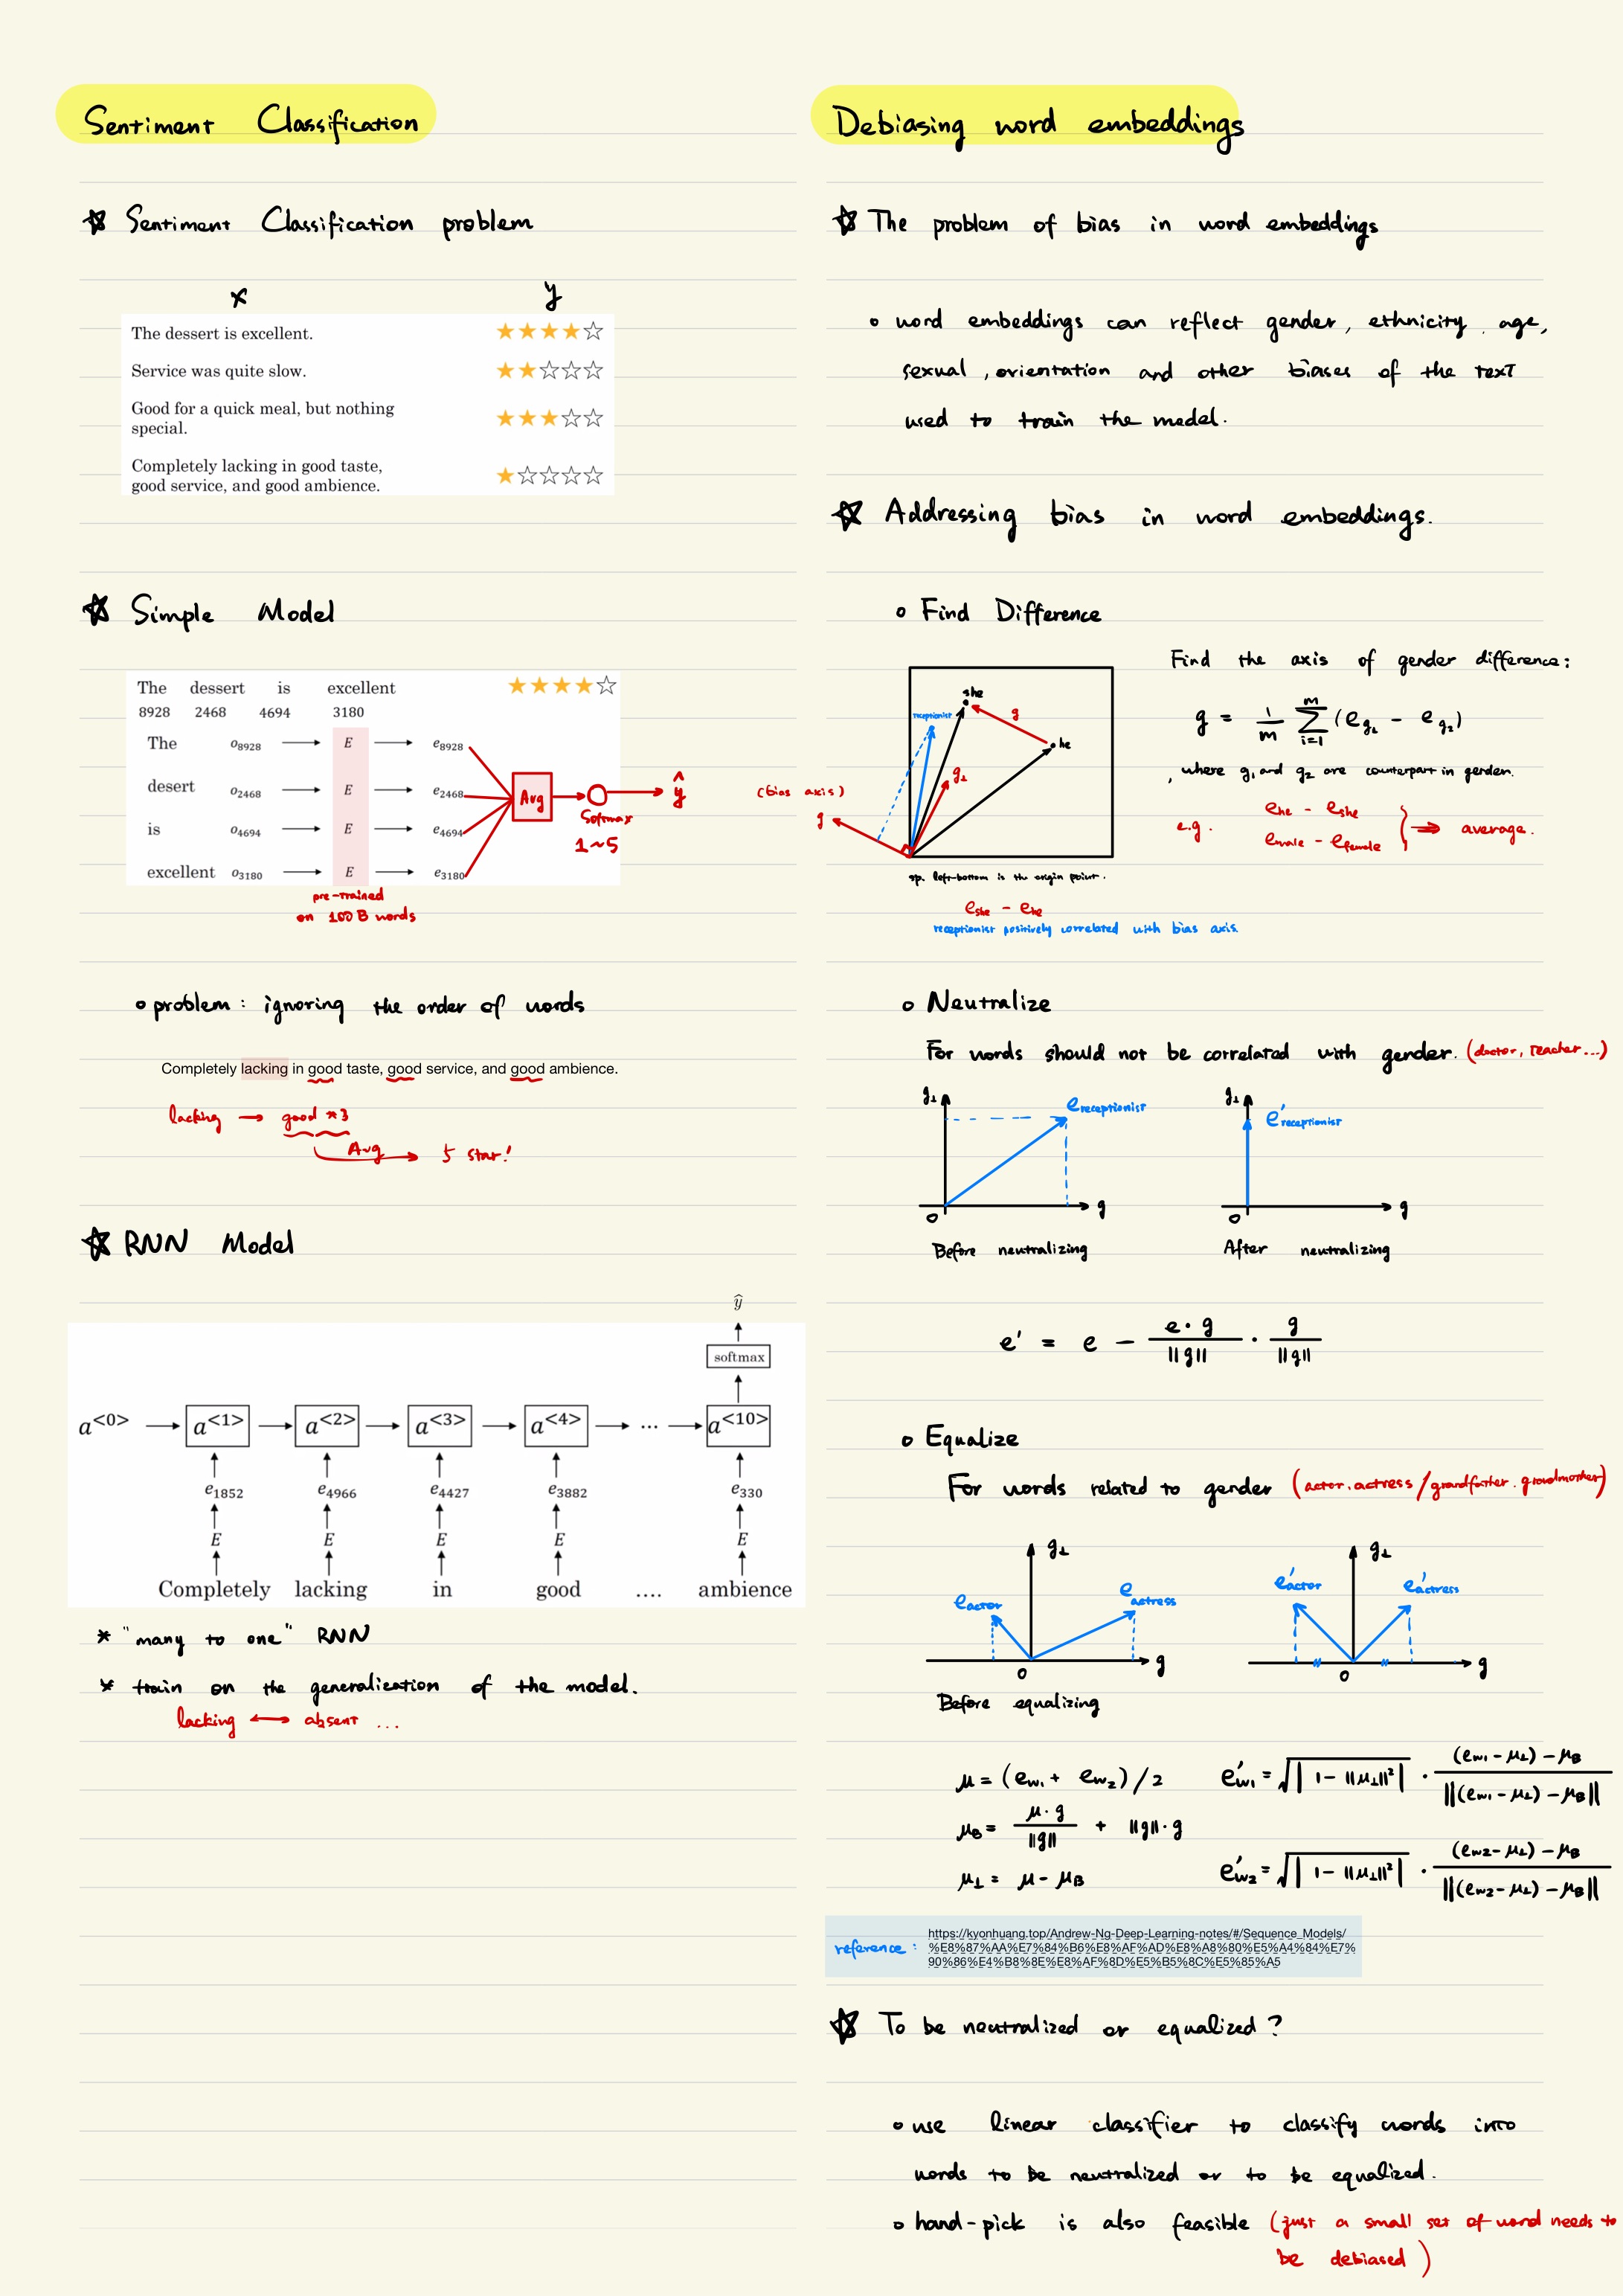 Sentiment Classification
☆ Sentiment Classification problem
x y
The dessert is excellent. ★★★★☆
Service was quite slow. ★★☆☆☆
Good for a quick meal, but nothing
special. ★★★☆☆
Completely lacking in good taste,
good service, and good ambience. ★☆☆☆☆
☆ Simple Model
The dessert is excellent ★★★★☆
8928 2468 4694 3180
The o8928 → E → e8928
desert o2468 → E → e2468
is o4694 → E → e4694
excellent o3180 → E → e3180
Avg → ŷ
Softmax
1~5
pre-trained
on 100 B words
o problem: ignoring the order of words
Completely lacking in good taste, good service, and good ambience.
lacking → good *3
Avg → 5 star!
☆ RNN Model
ŷ
softmax
a<0> → a<1> → a<2> → a<3> → a<4> → ... → a<10>
e1852 e4966 e4427 e3882 e330
E E E E E
Completely lacking in good .... ambience
* "many to one" RNN
* train on the generalization of the model.
lacking ↔ absent ...
Debiasing word embeddings
☆ The problem of bias in word embeddings
o word embeddings can reflect gender, ethnicity, age,
sexual, orientation and other biases of the text
used to train the model.
☆ Addressing bias in word embeddings.
o Find Difference
she
receptionist
g
he
g⊥
(bias axis)
g
sp. left-bottom is the origin point.
eshe - ehe
receptionist positively correlated with bias axis.
Find the axis of gender difference:
g = 1/m Σ_{i=1}^{m} (e_{g1} - e_{g2})
, where g1 and g2 are counterpart in gender.
e.g. ehe - eshe
emale - efemale } ⇒ average.
o Neutralize
For words should not be correlated with gender. (doctor, teacher...)
g⊥ ereceptionist g⊥ e'receptionist
o g o g
Before neutralizing After neutralizing
e' = e - e·g/||g|| · g/||g||
o Equalize
For words related to gender (actor. actress / grandfather. grandmother)
g⊥ g⊥
eactor eactress e'actor e'actress
o g o g
Before equalizing
μ = (ew1 + ew2)/2
μB = μ·g/||g|| + ||g||·g
μ⊥ = μ - μB
e'w1 = √|1 - ||μ⊥||²| · (ew1 - μ⊥) - μB / ||(ew1 - μ⊥) - μB||
e'w2 = √|1 - ||μ⊥||²| · (ew2 - μ⊥) - μB / ||(ew2 - μ⊥) - μB||
reference: https://kyonhuang.top/Andrew-Ng-Deep-Learning-notes/#/Sequence_Models/
%E8%87%AA%E7%84%B6%E8%AF%AD%E8%A8%80%E5%A4%84%E7%
90%86%E4%B8%8E%E8%AF%8D%E5%B5%8C%E5%85%A5
☆ To be neutralized or equalized?
o use linear classifier to classify words into
words to be neutralized or to be equalized.
o hand-pick is also feasible (just a small set of word needs to
be debiased)